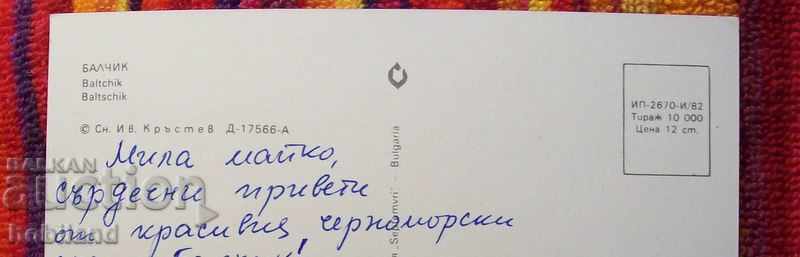 БАЛЧИК
Baltchik
Baltschik
© Сн. Ив. Кръстев Д-17566-А
ИП-2670-И/82
Тираж 10 000
Цена 12 ст.
Мила майко,
сърдечни привети
от красивия черноморски
"Septemvri" - Bulgaria
BALKAN
auction
hobiland